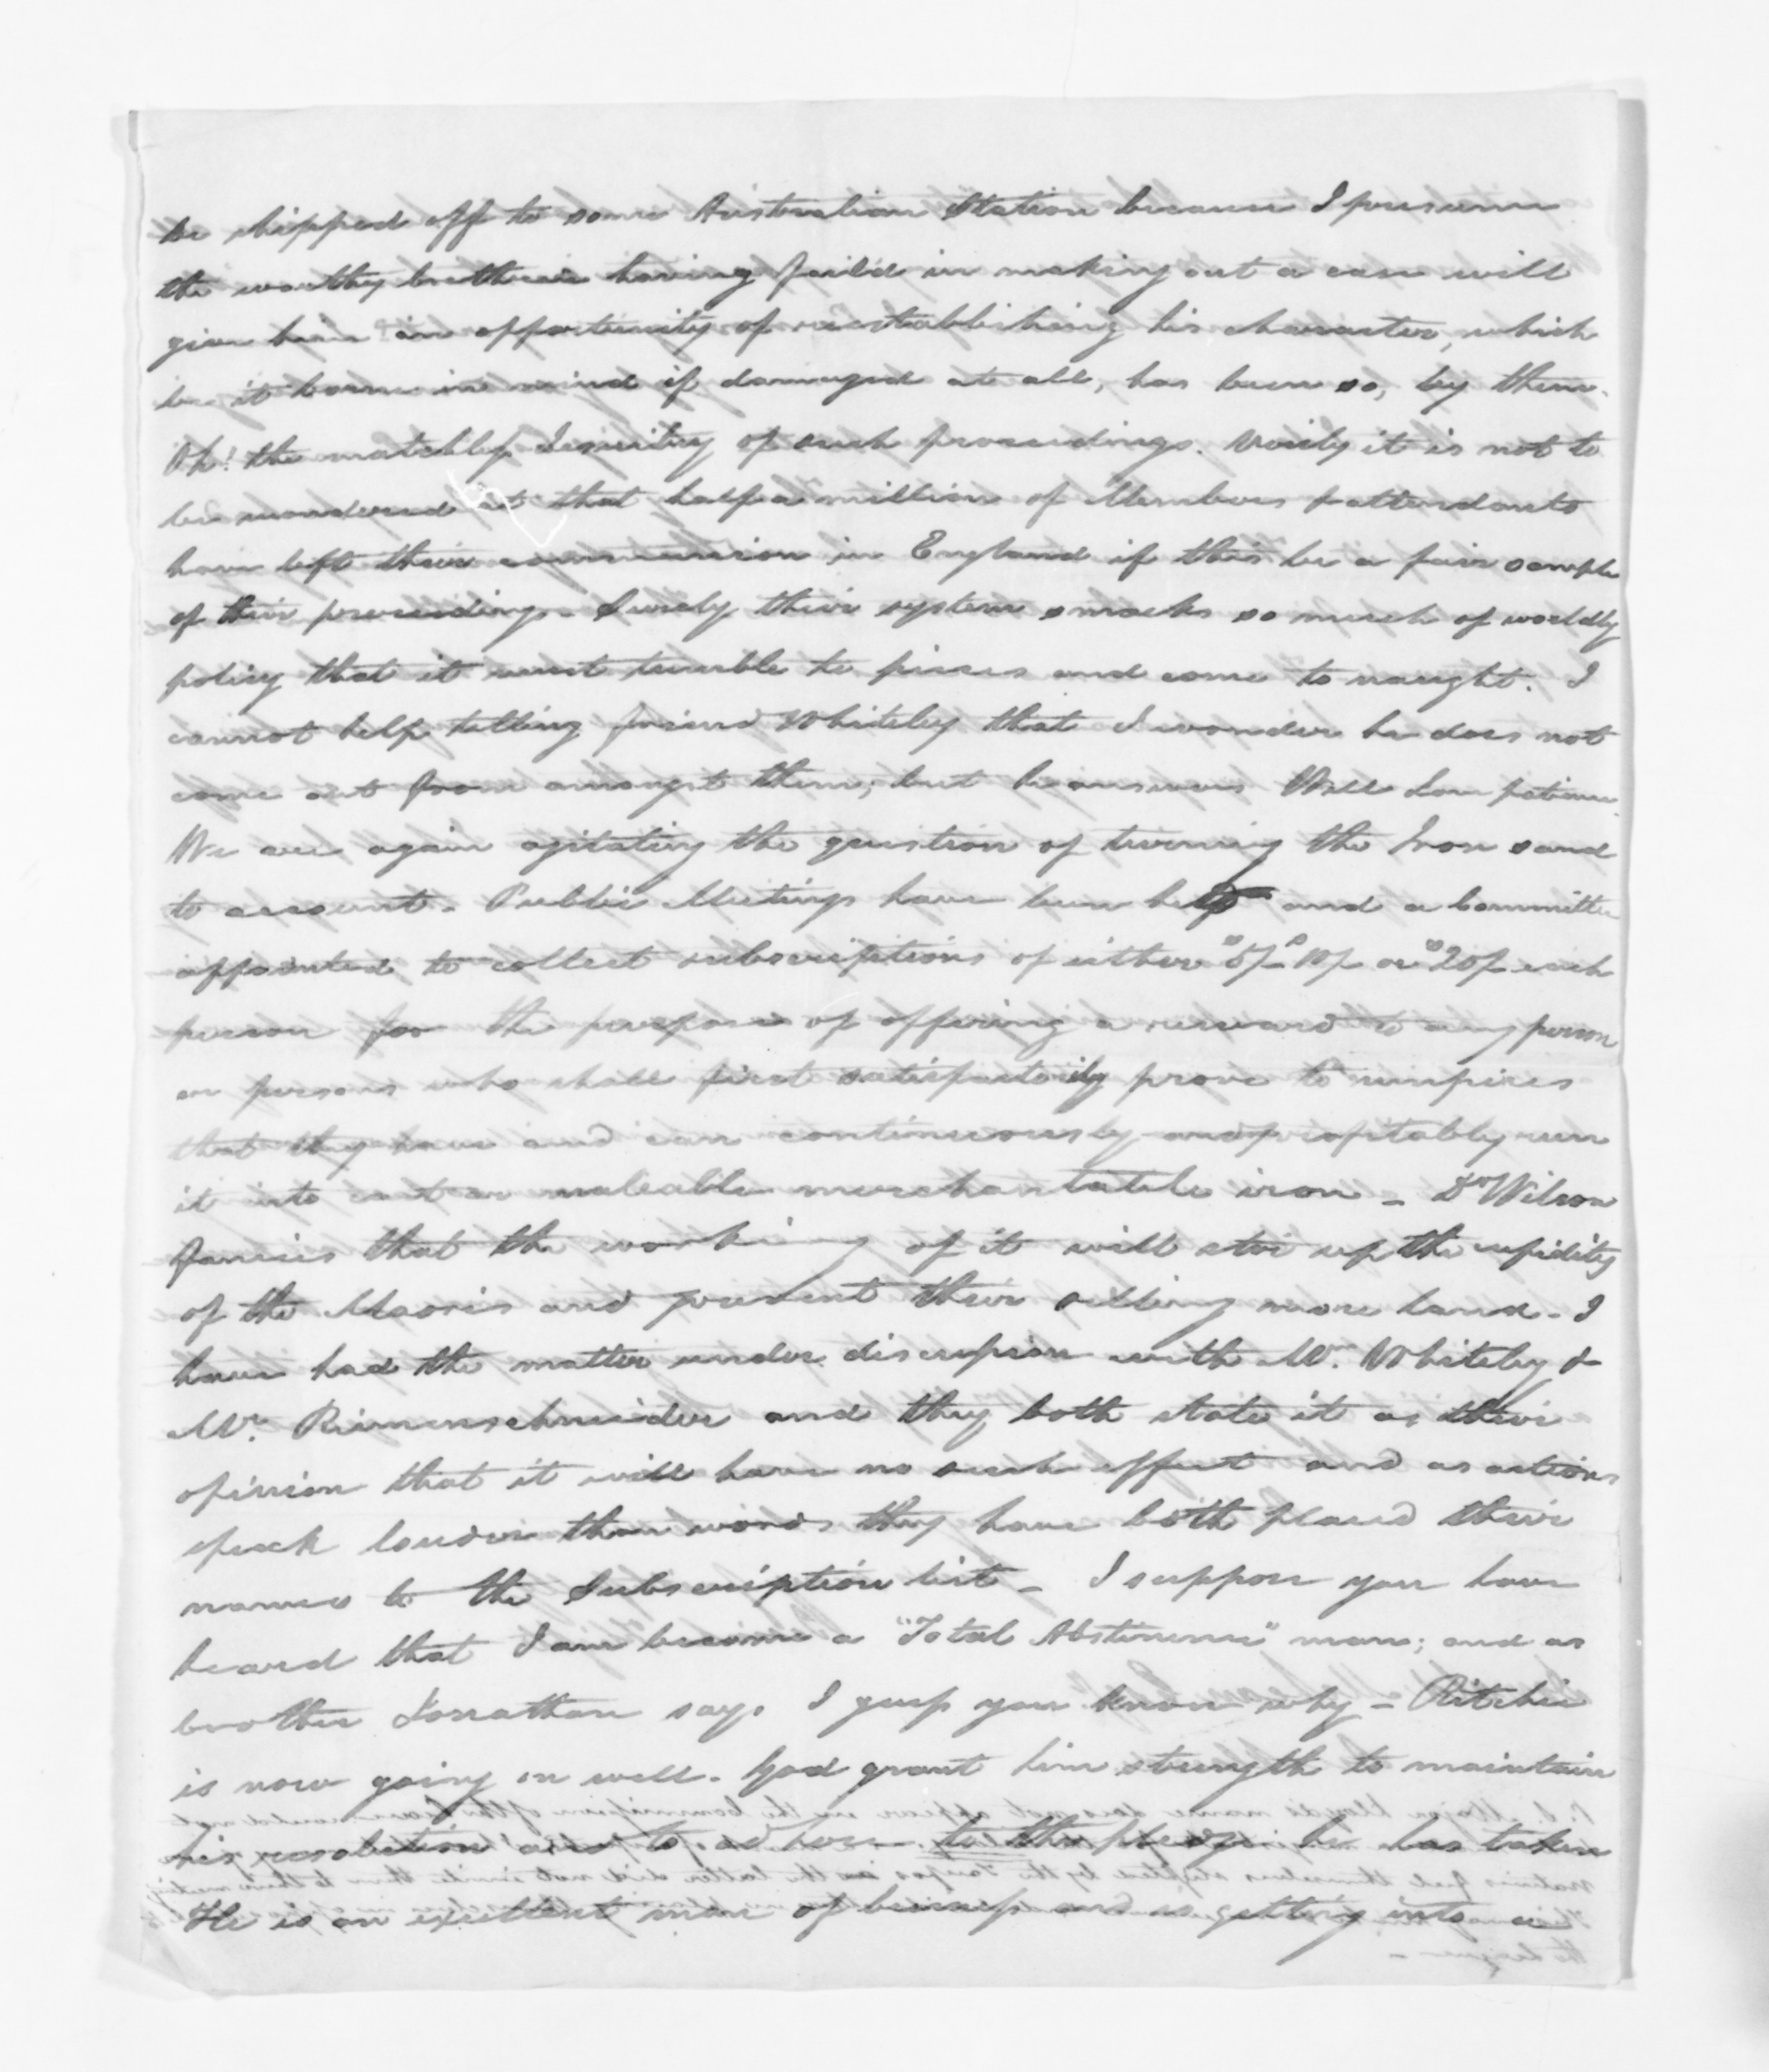 be shipped off to some Australian Station because I presume
the worthy brethren having fail'd in making out a case will
give him an opportunity of reestablishing his character, which
be it borne in mind if damaged at all, has been so, by them.
Oh! the matchless Jesuitry of such proceedings. Verily it is not to
be wondered at that half a million of Members & attendants
have left their communion in England if this be a fair sample
of their proceedings. Surely their system smacks so much of worldly
policy that it must tumble to pieces and come to naught. I
cannot help telling friend Whiteley that I wonder he does not
come out from amongst them; but he answers Well Sow patience.
We are again agitating the question of turning the Iron sand
to account. Public Meetings have been held and a Committee
appointed to collect subscriptions of either 5/- 10/- or 20/- each
person for the purpose of offering a reward to any person
or persons who shall first satisfactorily prove to umpires
that they have and can continuously and profitably run
it into cast or maleable merchantable iron - Dr Wilson
fancies that the working of it will stir up the cupidity
of the Maoris and prevent their selling more land. I
have had the matter under discussion with Mr. Whiteley &
Mr. Riemenschneider and they both state it as their
opinion that it will have no such effect and as actions
speak louder than words they have both placed their
names to the Subscription list - I suppose you have
heard that I am become a "Total Abstinence" man; and as
brother Jonathan says I guess you know why - Ritchie
is now going on well. God grant him strength to maintain
his resolution and to adhere to the pledge he has taken
He is an excellent man of business and is getting into a